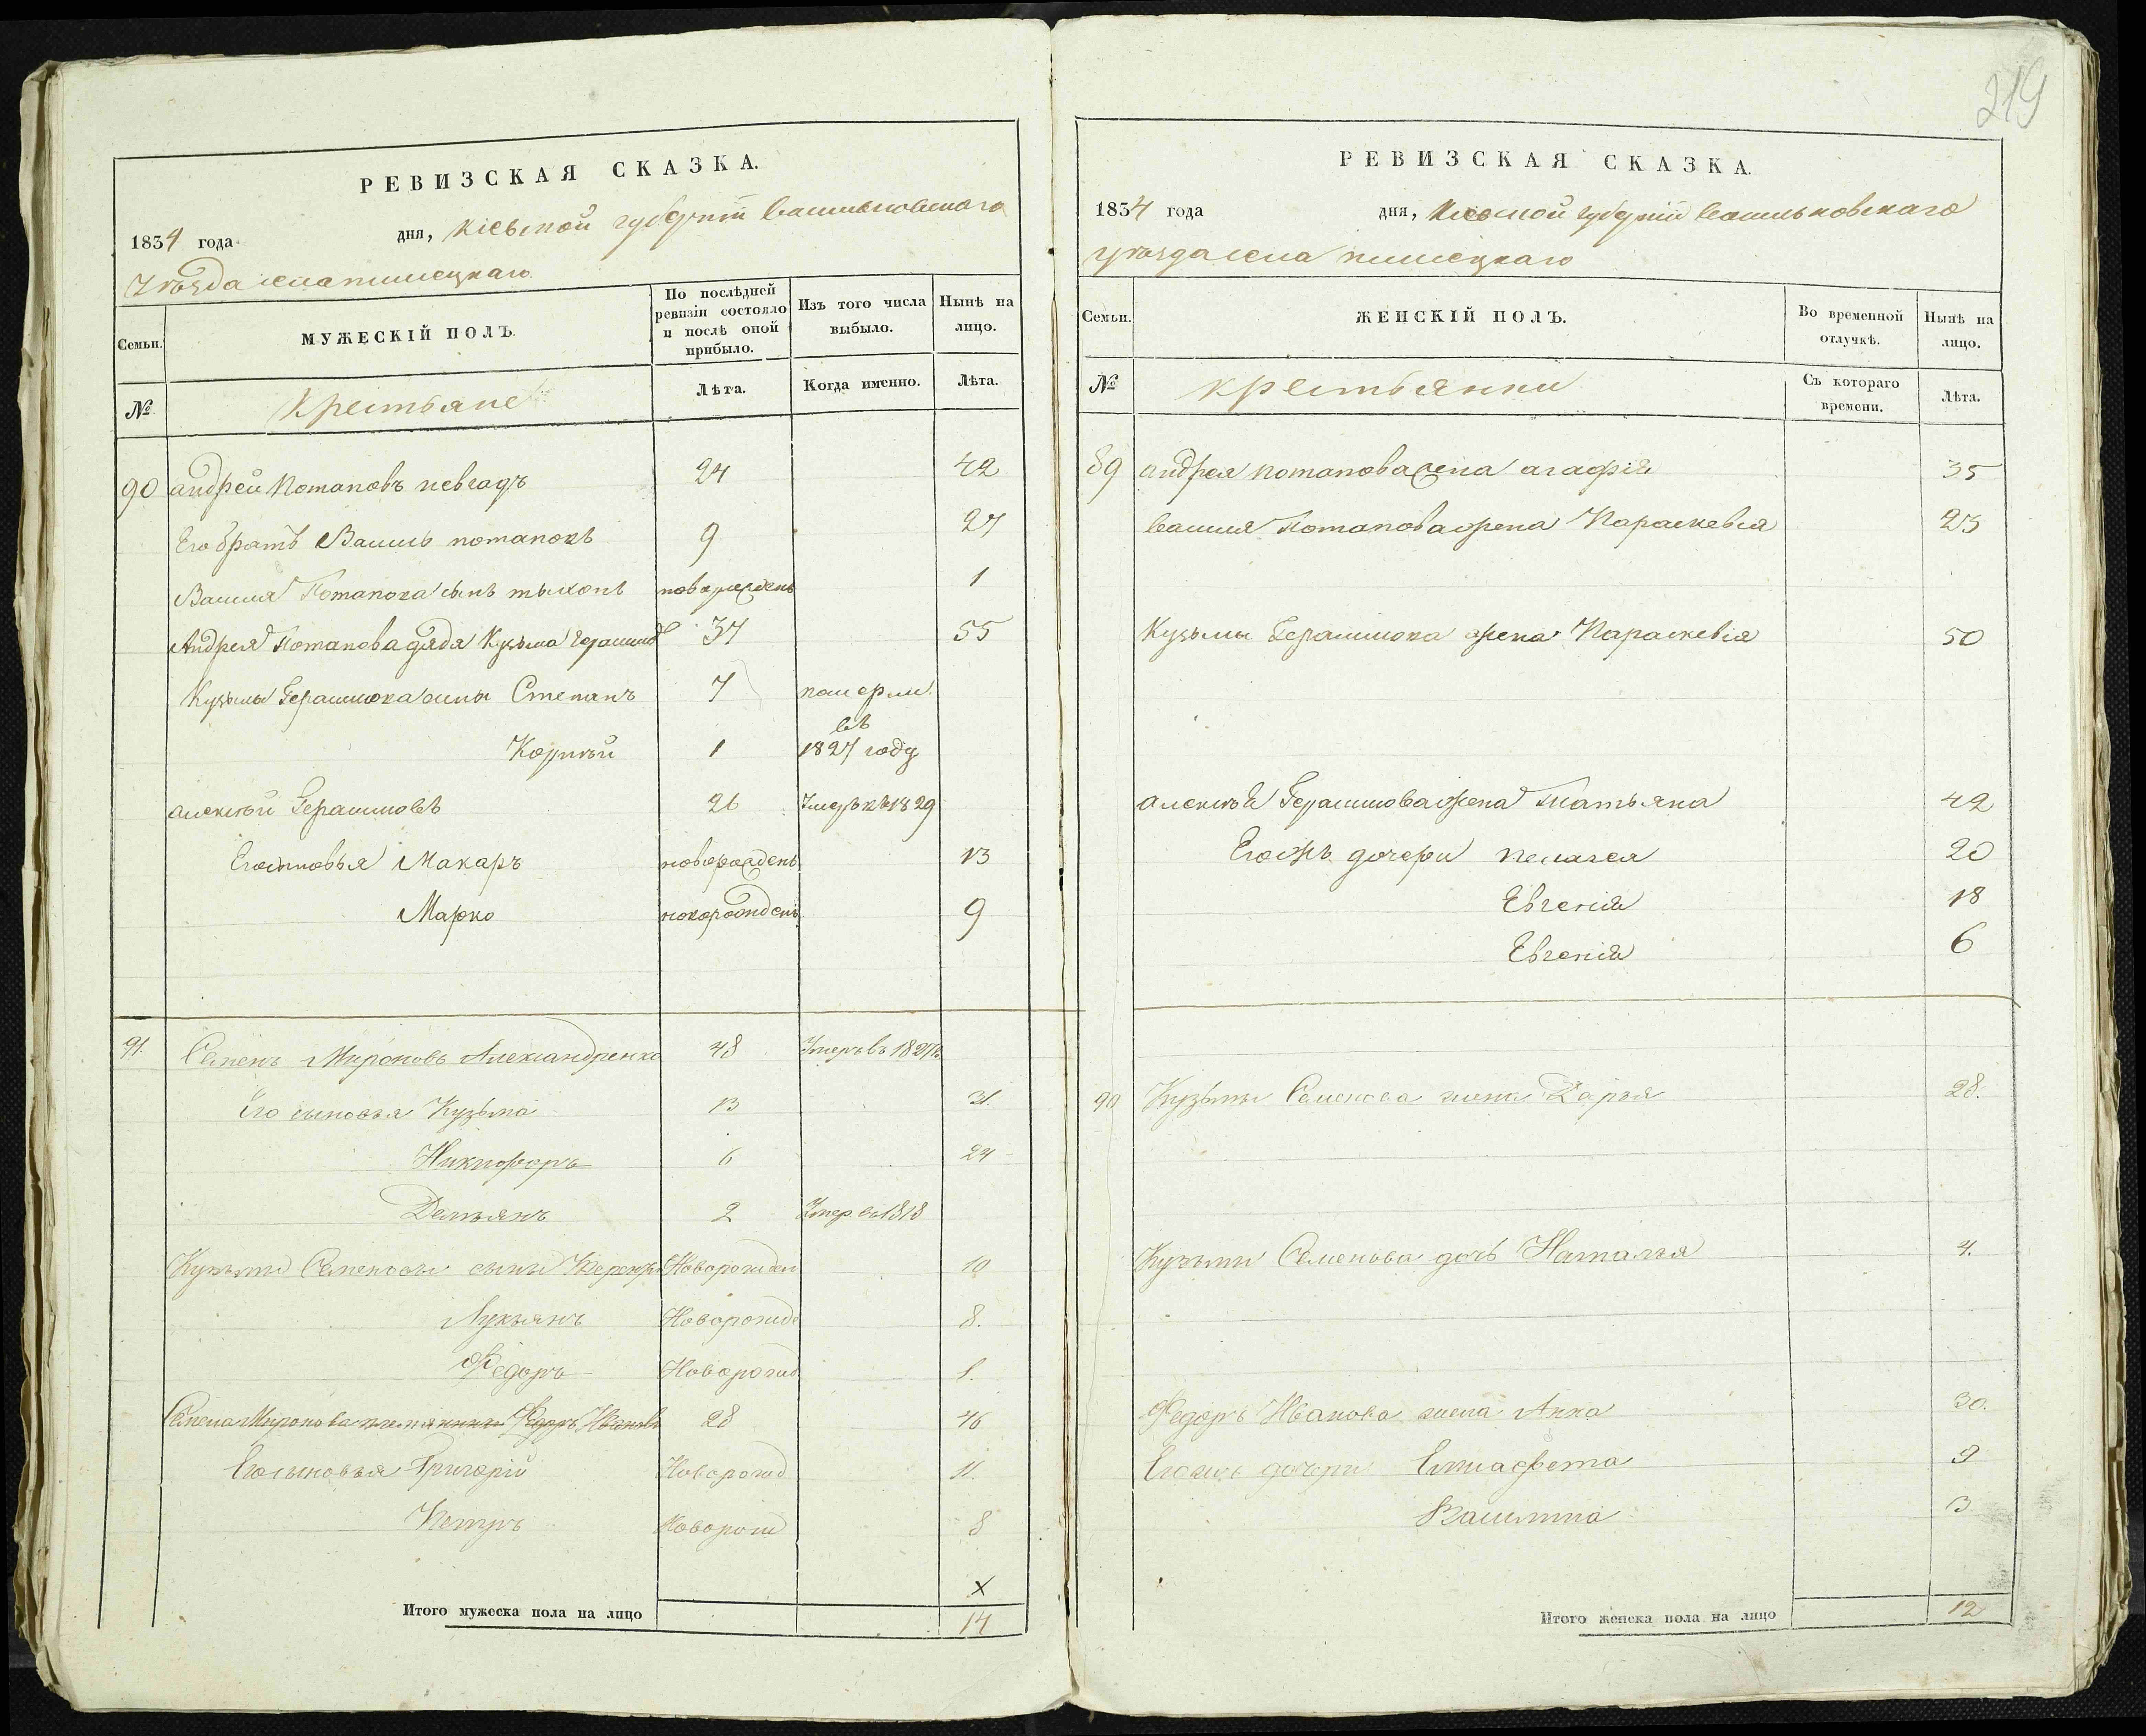 219
РЕВИЗСКАЯ СКАЗКА.
1834 года дня, Кіевской губерніи Васильковскаго
уѣзда села
Семьи.
МУЖЕСКІЙ ПОЛЪ.
По послѣдней ревизіи состояло и послѣ оной прибыло.
Изъ того числа выбыло.
Нынѣ на лицо.
№
Крестьяне
Лѣта.
Когда именно.
Лѣта.
90 андрей Потаповъ 24 42
Его братъ Василь потаповъ 9 27
Василя Потапова сынъ тыхонъ новорожденъ 1
Андрея Потапова дядя Кузьма 37 55
Кузьмы Герасимова сины Степанъ 7
въ
Корнѣй 1 1827 году
алексѣй Герасимовъ 26 1829
Его сыновья Макаръ новорожденъ 13
Марко новорожденъ 9
91. Семенъ Мироновъ Александренко 48 Умеръ въ 1827
Его сыновья Кузьма 13 31.
Никифоръ 6 24
Демьянъ 2 Умер. въ 1818
Кузьмы Семенова сыны Новорожден 10
Лукьянъ Новорожд 8.
Федоръ Новорожд 1.
Семена Миронова племянникъ Федоръ Ивановъ 28 46
Его сыновья Григорій Новорожд 11.
Петръ Новорож 8
х
Итого мужеска пола на лицо 14
РЕВИЗСКАЯ СКАЗКА.
1834 года дня, Кіевской губерніи Васильковскаго
уѣзда села
Семьи.
ЖЕНСКІЙ ПОЛЪ.
Во временной отлучкѣ.
Нынѣ на лицо.
№
крестьянки
Съ котораго времени.
Лѣта.
89 андрея потапова жена агафія 35
Василя Потапова жена Параскевія 23
Кузьмы Герасимова жена Параскевія 50
алексѣя Герасимова жена Татьяна 42
Его жъ дочери пелагея 20
Евгенія 18
Евгенія 6
90 Кузьмы Семенова жена Дарья 28.
Кузьмы Семенова дочь Наталья 4.
Федоръ Иванова жена Анна 30.
Его же дочери Елисафета 9
Василина 3
Итого женска пола на лицо 12